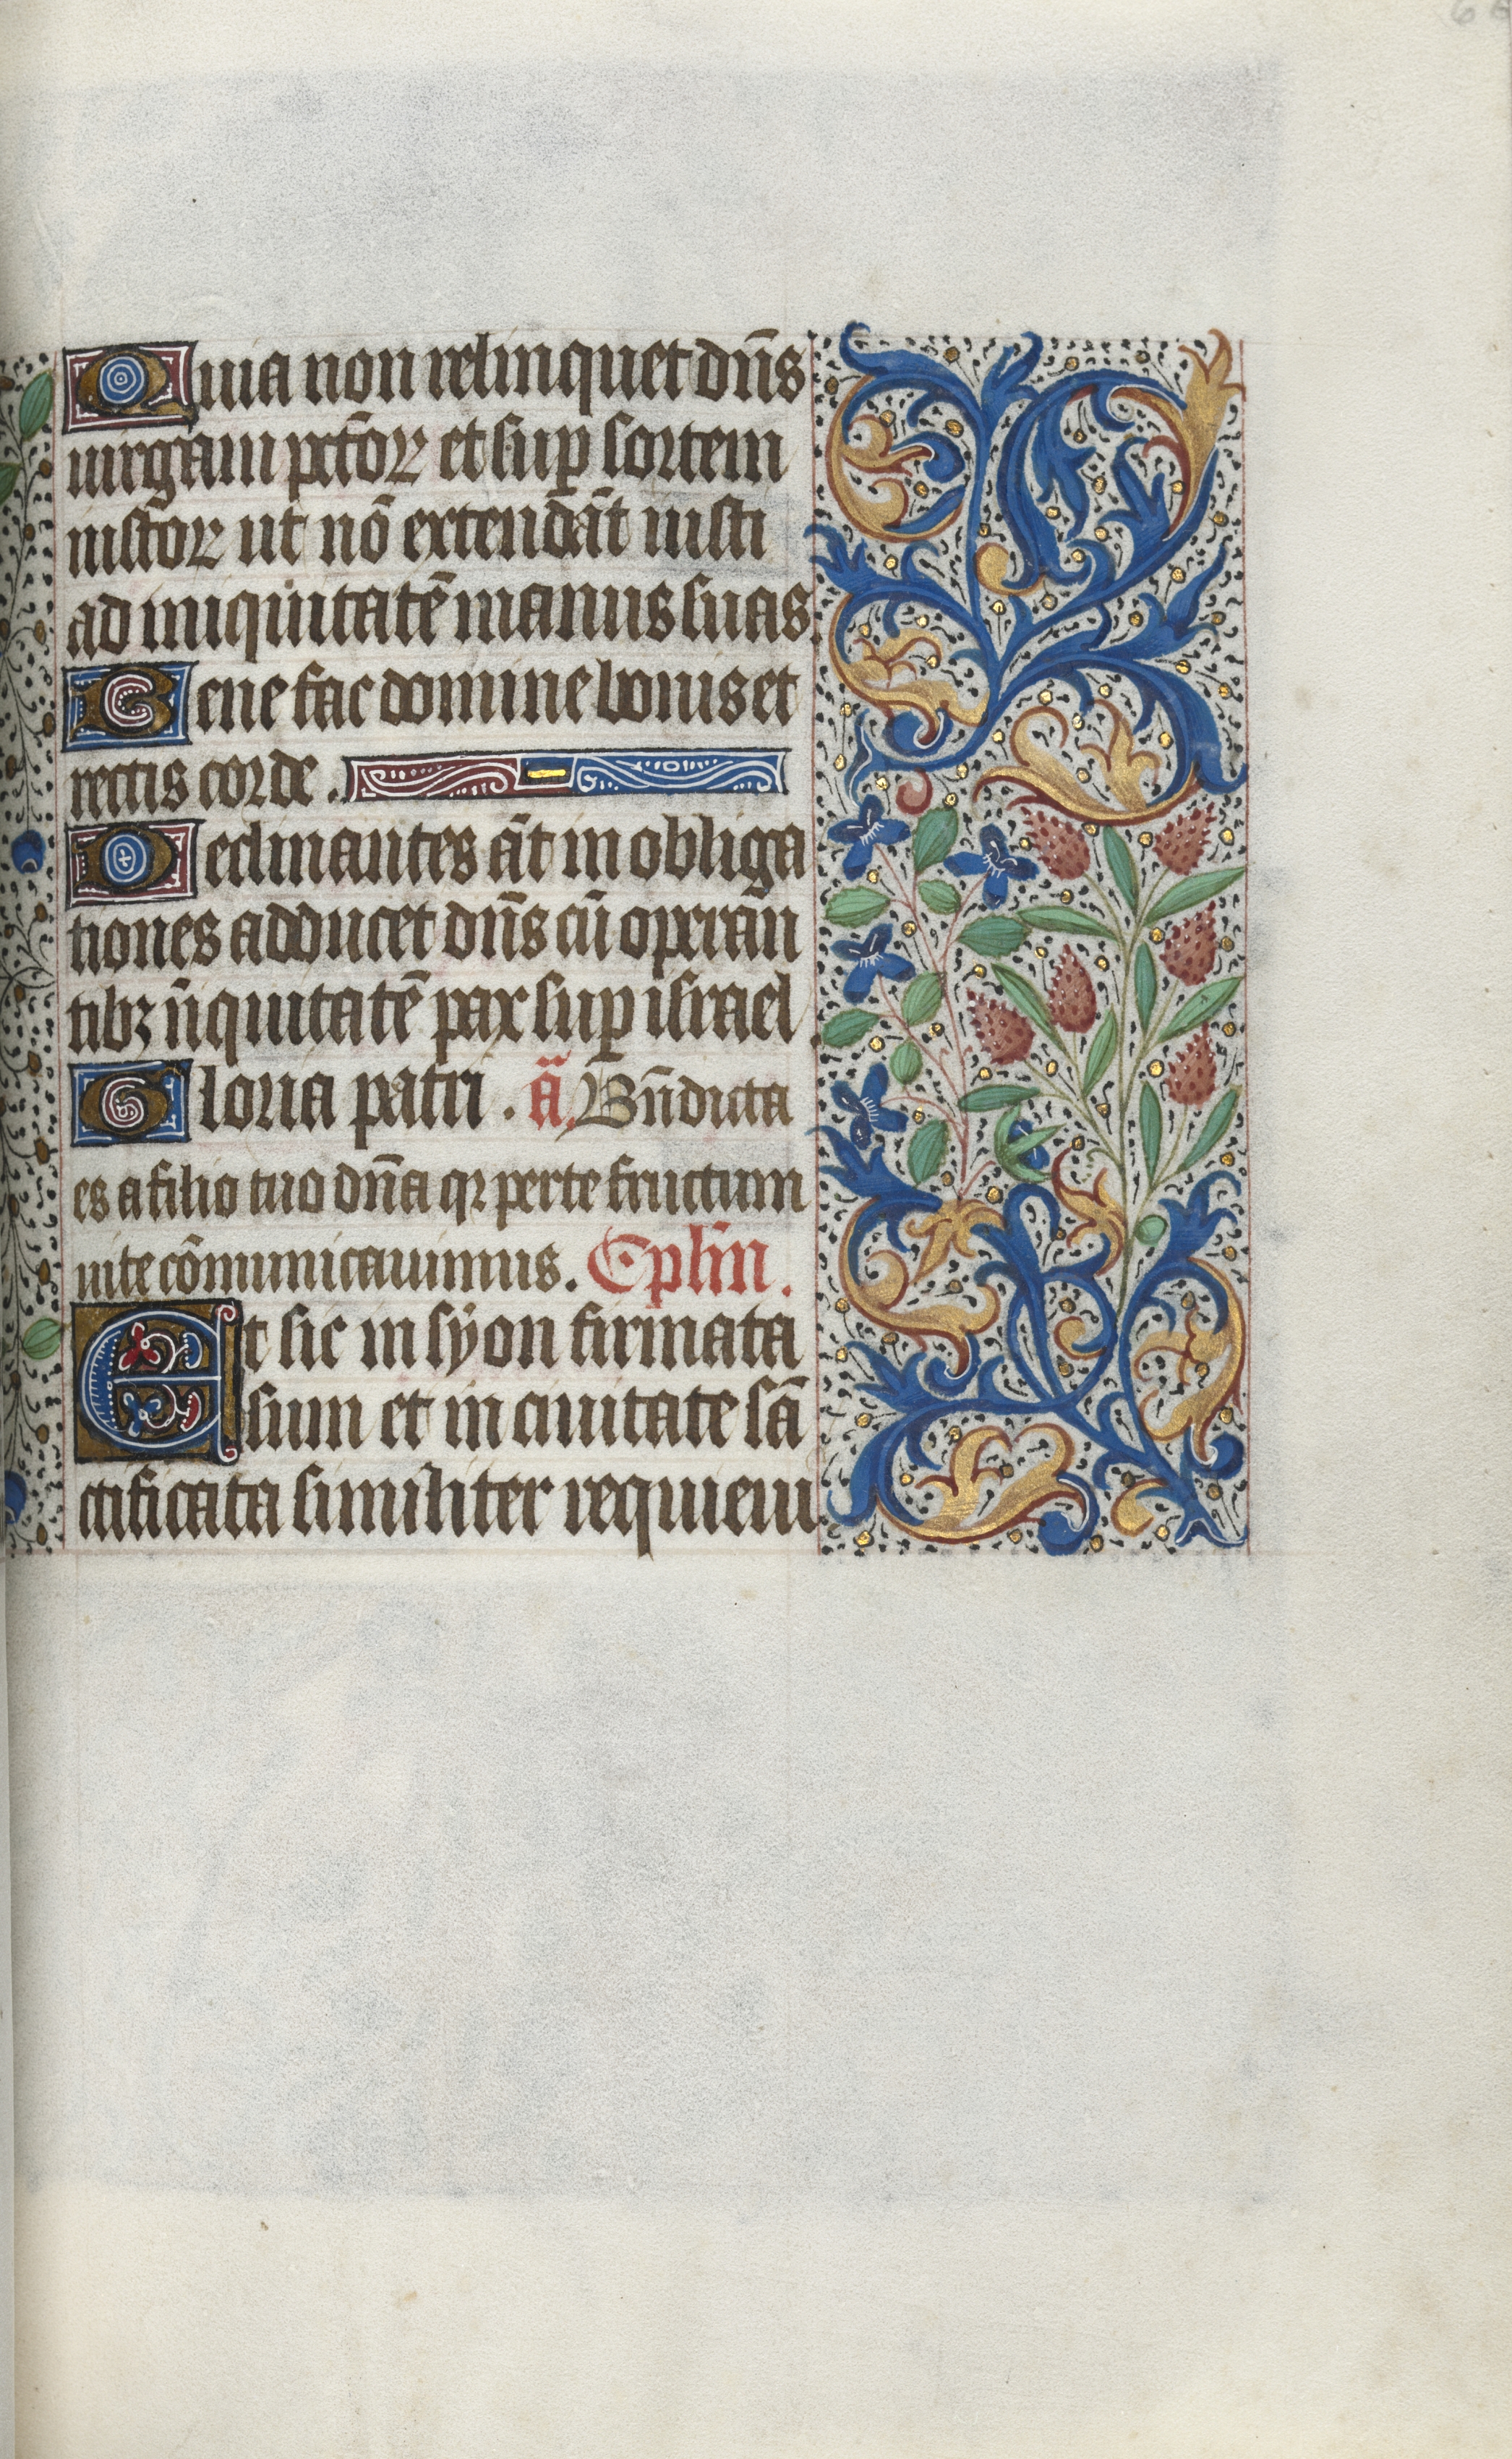 Quia non relinquet dn̄s
uirgam pctō℞ et suꝑ sortem
iustō℞ ut nō extendāt iusti
ad iniquitatē manus suas.
Bene fac domine bonis et
rectis corde.
Declinantes āt in obliga
tiones adducet dn̄s cū operan̄
tibꝫ īiquitatē pax suꝑ israel
Gloria patri. ā. Bn̄dicta
es a filio tuo dn̄a qꝛ per te fructum
uite cōmunicauimus. Eplīn.
Et sic in syon firmata
sum et in ciuitate sā
ctificata similiter requieui